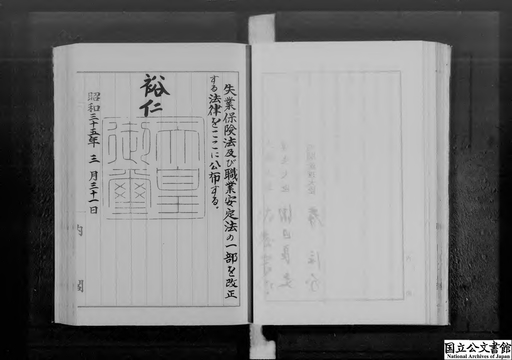 失業保険法及び職業安定法の一部を改正
する法律をここに公布する。
裕仁
天皇
御璽
昭和三十五年 三 月三十一日
内閣
国立公文書館
National Archives of Japan